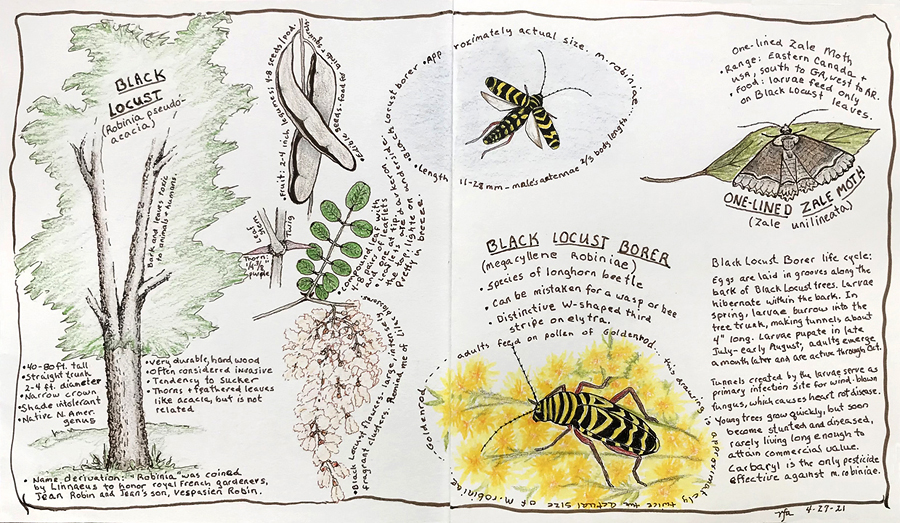 BLACK
LOCUST
(Robinia pseudo-
acacia)
Bark and leaves toxic
to animals + humans.
•40-80 ft. tall
•Straight trunk,
2-4 ft. diameter
•Narrow crown
•Shade intolerant
•Native N. Amer.
genus
•Very durable, hard wood
•Often considered invasive
•Tendency to sucker
•Thorns + feathered leaves
like acacia, but is not
related
•Name derivation: "Robinia" was coined
by Linnaeus to honor royal French gardeners,
Jean Robin and Jean's son, Vespasien Robin.
•Fruit: 2-4 inch legumes; 4-8 seeds/pod.
•Edible seeds: food
Leaf
Stem
Twig
Thorn:
purple
compound leaf with
4-8 pairs of leaflets
and one at tip.
Leaflets are darker on
the top, lighter on
underside.
•Black Locust flowers: large, intensely
fragrant clusters. Remind me of lilac blooms.
Black Locust borer • Approximately actual size. M. robiniae...
•Length 11-28 mm - male's antennae 2/3 body length.
One-lined Zale Moth
•Range: Eastern Canada +
USA, south to GA, west to AR.
•Food: larvae feed only
on Black Locust leaves.
ONE-LINED ZALE MOTH
(zale unilineata)
BLACK LOCUST BORER
(megacyllene Robiniae)
•Species of longhorn beetle
•Can be mistaken for a wasp or bee
•Distinctive W-shaped third
stripe on elytra.
adults feed on pollen of Goldenrod.
this drawing is approximately twice the actual size of M. robiniae
Goldenrod
Black Locust Borer life cycle:
Eggs are laid in grooves along the
bark of Black Locust trees. Larvae
hibernate within the bark. In
spring, larvae burrow into the
tree trunk, making tunnels about
4" long. Larvae pupate in late
July-early August; adults emerge
a month later and are active through Oct.
Tunnels created by the larvae serve as
primary infection site for wind-blown
fungus, which causes heart rot disease.
Young trees grow quickly, but soon
become stunted and diseased,
rarely living long enough to
attain commercial value.
Carbaryl is the only pesticide
effective against M. robiniae.
4-27-21